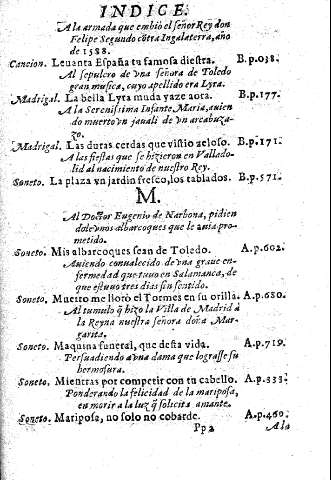 INDICE.
A la armada que embió el señor Rey don
Felipe Segundo cõtra Ingalaterra, año
de 1588.
Cancion. Leuanta España tu famosa diestra. B.p.038.
Al sepulcro de vna señora de Toledo
gran musica, cuyo apellido era Lyra.
Madrigal. La bella Lyra muda yaze aora. B.p.177.
A la Serenissima Infante Maria, auien
do muerto vn jauali de vn arcabuza-
zo.
Madrigal. Las duras cerdas que vistio zeloso. B.p.171.
A las fiestas que se hizieron en Vallado-
lid al nacimiento de nuestro Rey.
Soneto. La plaza vn jardin fresco, los tablados. B.p.571.
M.
Al Doctor Eugenio de Narbona, pidien
dole vnos albarcoques que le auia pro-
metido.
Soneto. Mis albarcoques sean de Toledo. A.p.602.
Auiendo conualecido de vna graue en-
fermedad que tuuo en Salamanca, de
que estuuo tres dias sin sentido.
Soneto. Muerto me llorò el Tormes en su orilla. A.p.680.
Al tumulo q̃ hizo la Villa de Madrid a
la Reyna nuestra señora doña Mar-
garita.
Soneto. Maquina funeral, que desta vida. A.p.719.
Persuadiendo a vna dama que lograsse su
hermosura.
Soneto. Mientras por competir con tu cabello. A.p.333.
Ponderando la felicidad de la mariposa,
en morir a la luz q̃ solicita amante.
Soneto. Mariposa, no solo no cobarde. A.p.460.
Pp 2 A la